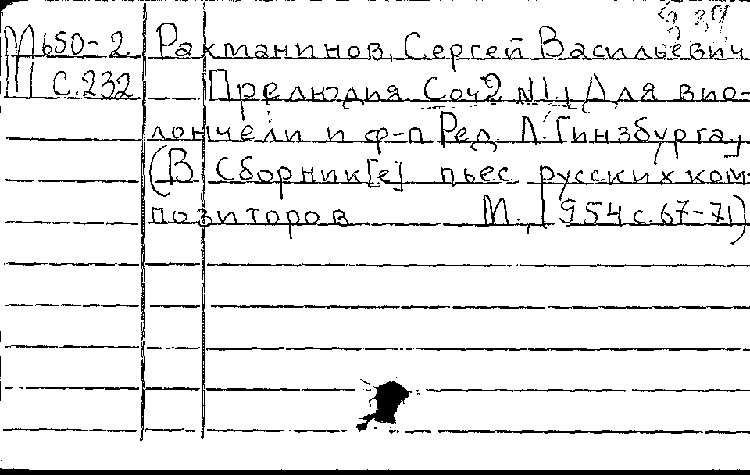 З 39
М 650-2. Рахманинов, Сергей Васильевич
С.232 Прелюдия Соч2 №1, Для вио-
лончели и ф-п Ред. Л. Гинзбурга,
(В Сборник[е] пьес русских ком-
позиторов М., 1954 с. 67-71)